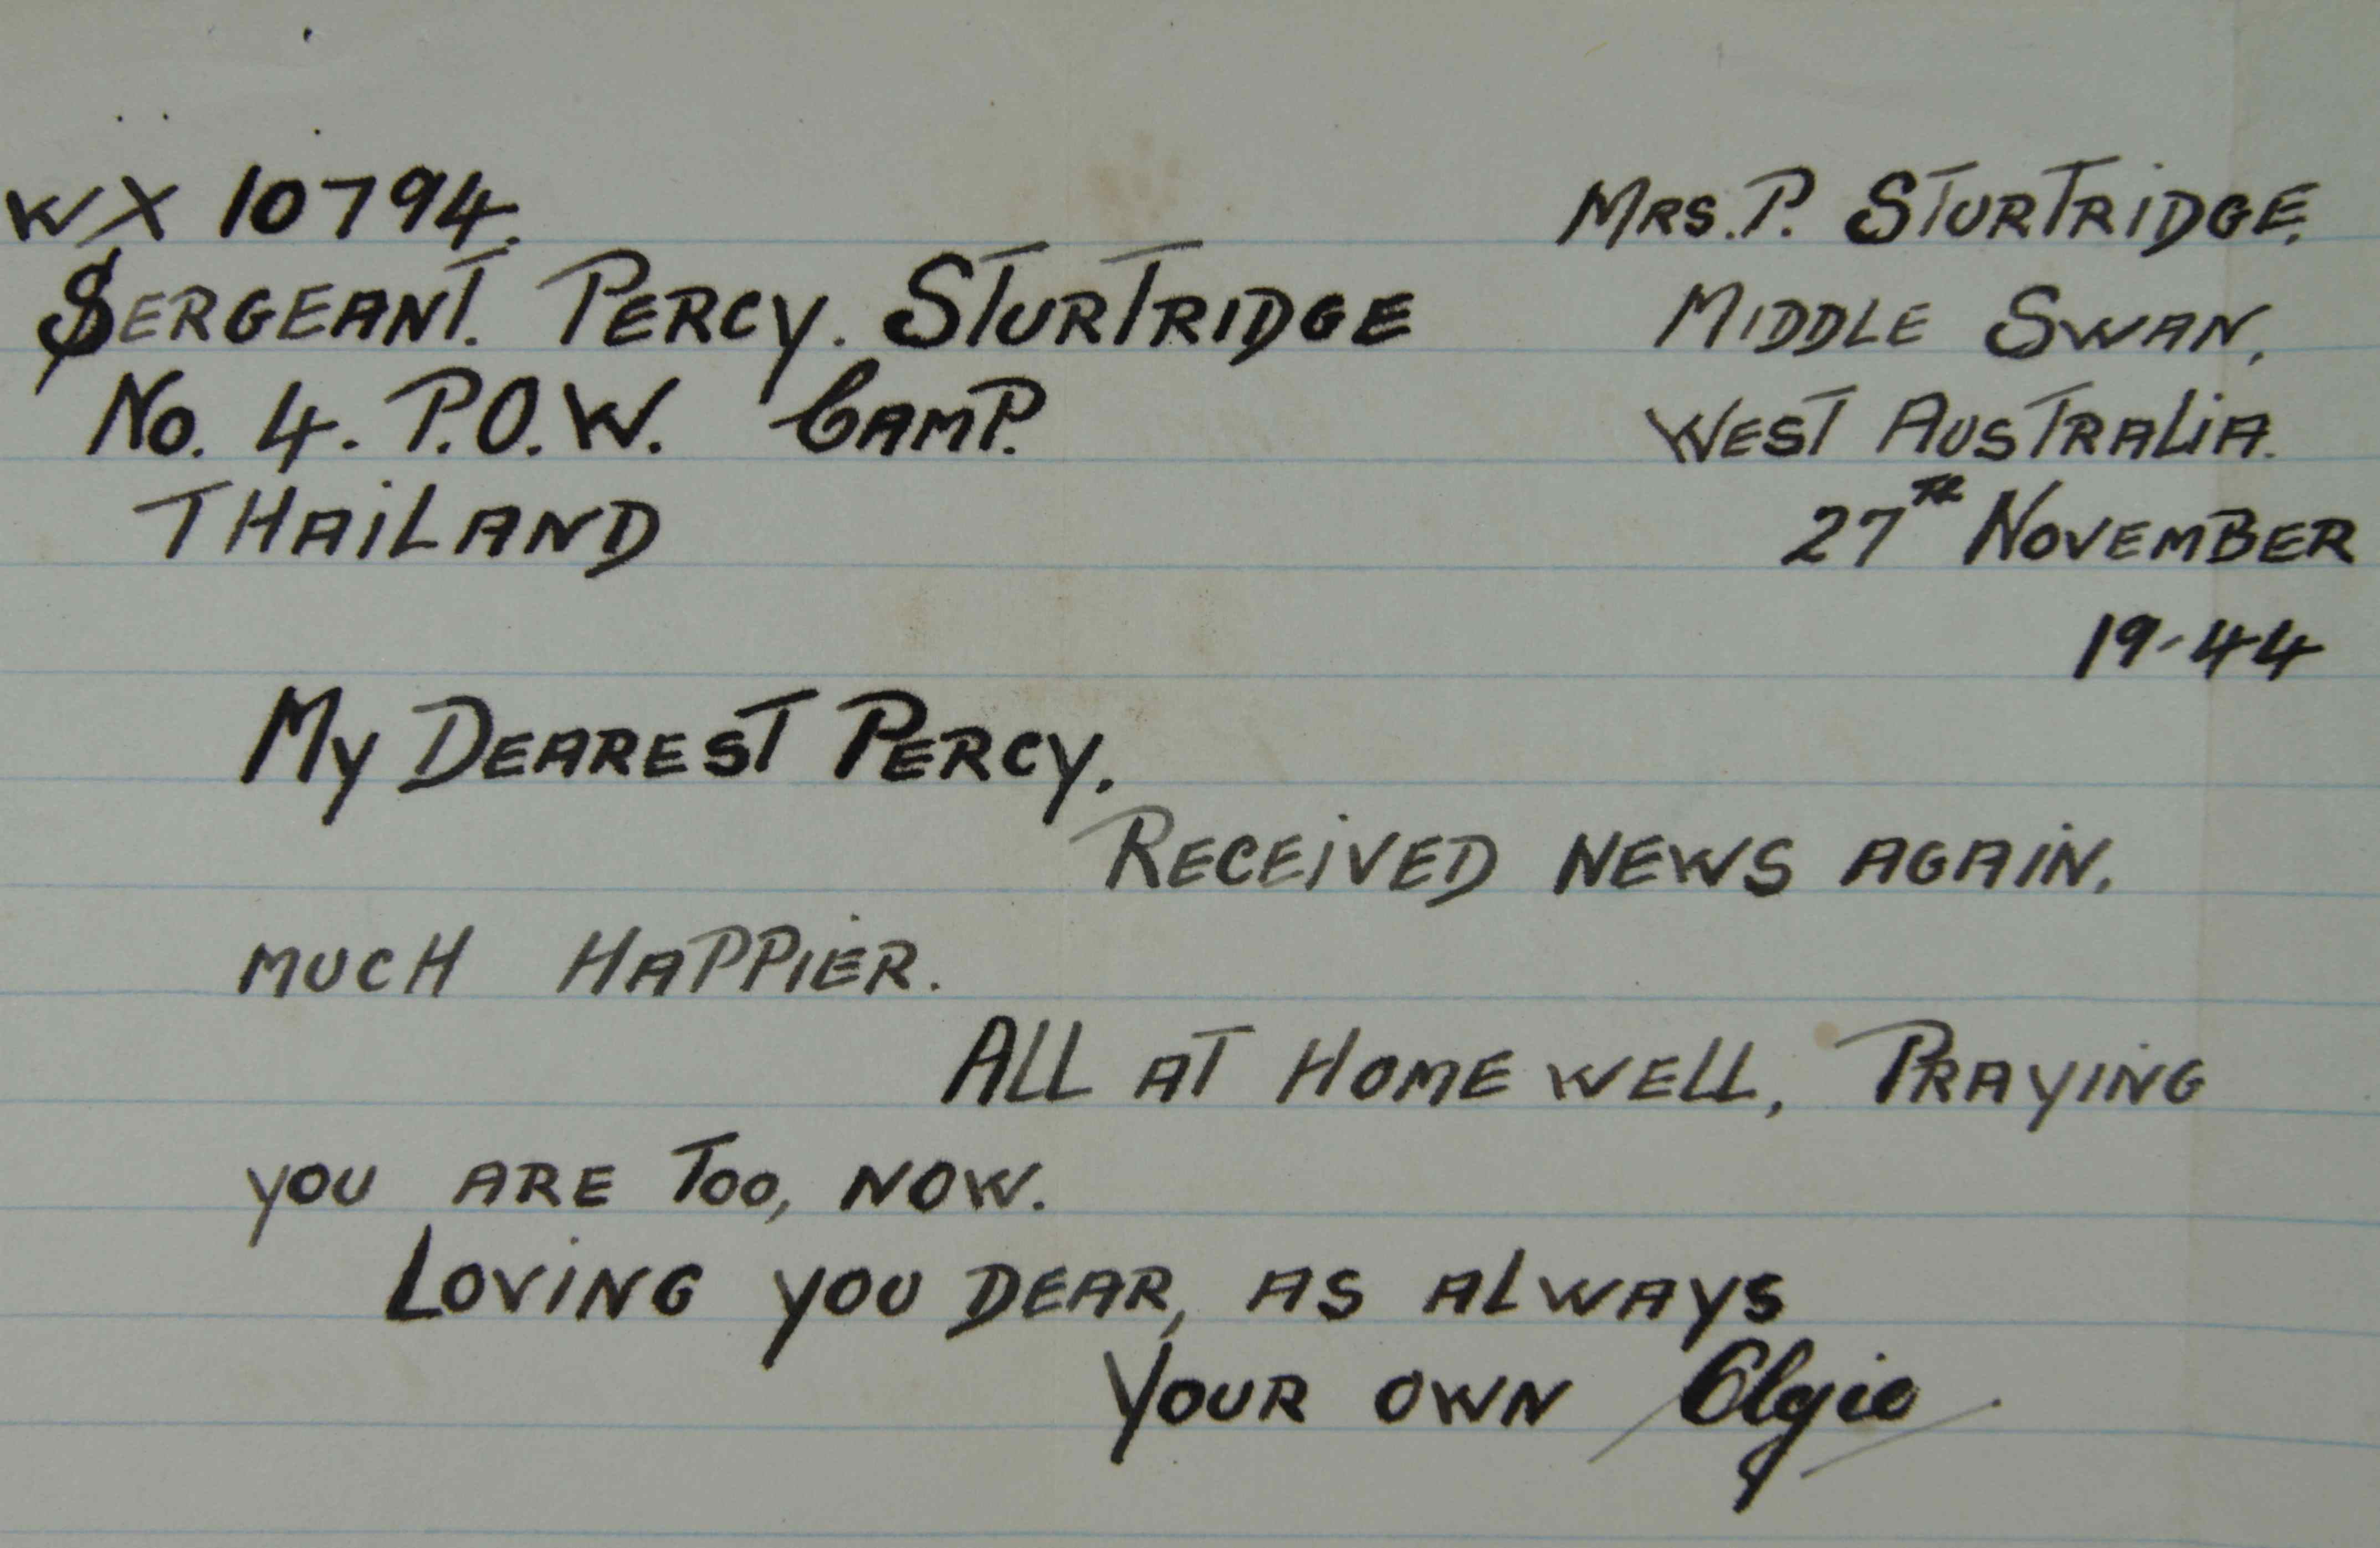 WX 10794.
SERGEANT. PERCY. STURTRIDGE
No. 4. P.O.W. CAMP.
THAiLAND
MRS. P. STURTRiDGE,
MIDDLE SWAN,
WEST AUSTRALiA.
27TH NOVEMBER
19-44
My DEAREST PERCY.
RECEiVED NEWS AGAiN,
MUCH HAPPiER.
ALL AT HOME WELL, PRAYiNG
YOU ARE Too, NOW.
LOViNG YOU DEAR, AS ALWAYS
YOUR OWN Elgie